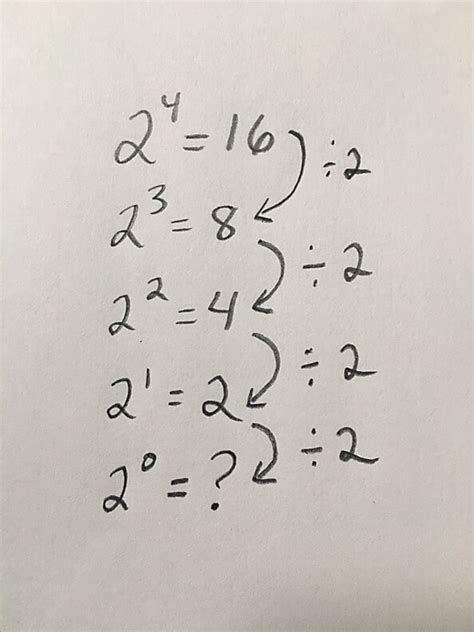 2⁴ = 16 ÷2
2³ = 8 ÷2
2² = 4 ÷2
2¹ = 2 ÷2
2⁰ = ?